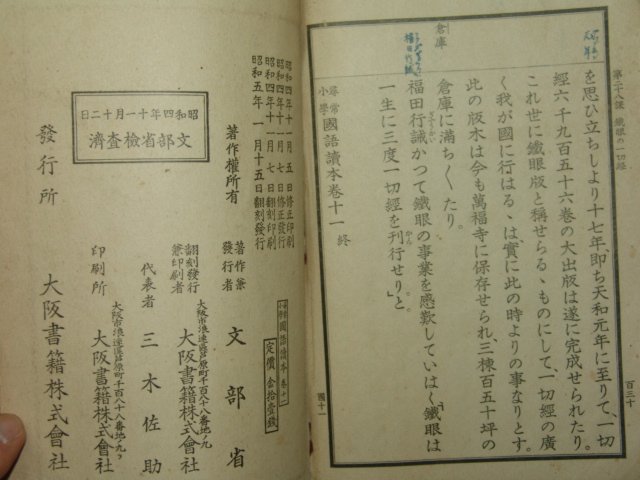 第二十八課　鐵眼の一切經
百三十
を思ひ立ちしより十七年、卽ち天和元年に至りて、一切
經六千九百五十六卷の大出版は遂に完成せられたり。
これ世に鐵眼版と稱せらるゝものにして、一切經の廣
く我が國に行はるゝは、實に此の時よりの事なりとす。
此の版木は今も萬福寺に保存せられ、三棟百五十坪の
倉庫に滿ち〱たり。
倉庫
福田行誡かつて鐵眼の事業を感歎していはく「鐵眼は
一生に三度一切經を刊行せり」と。
尋常小學國語讀本卷十一　終
國十一
昭和四年十一月五日修正印刷
昭和四年十一月七日修正發行
昭和四年十一月七日翻刻印刷
昭和五年一月十五日翻刻發行
定價　金拾壹錢
著作權所有
著作兼發行者　文部省
翻刻發行兼印刷者
大阪市浪速區芦原町千百八十八番地ノ九
大阪書籍株式會社
代表者　三木佐助
印刷所
大阪市浪速區芦原町千百八十八番地ノ九
大阪書籍株式會社
昭和四年十一月十二日
文部省檢査濟
發行所　大阪書籍株式會社